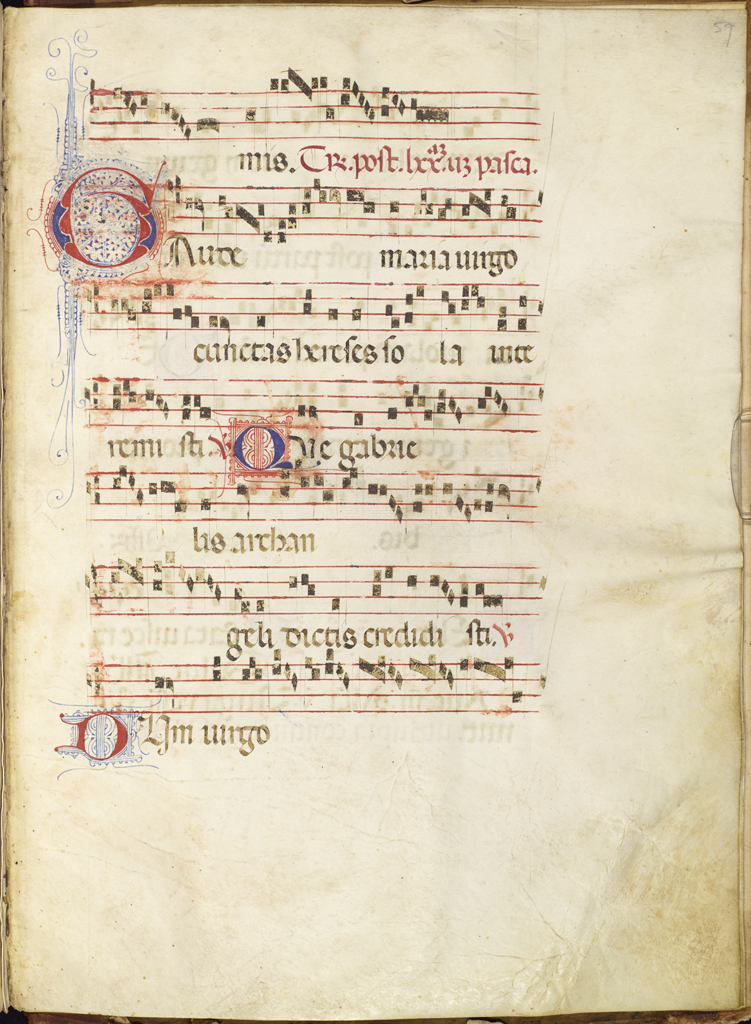 59
mis. Tr. post. lxx.az uz pasca.
GAude maria uirgo
cunctas hereses so la inte
remi sti. V Que gabrie
lis archan
geli dictis credidi sti. V
Dum uirgo